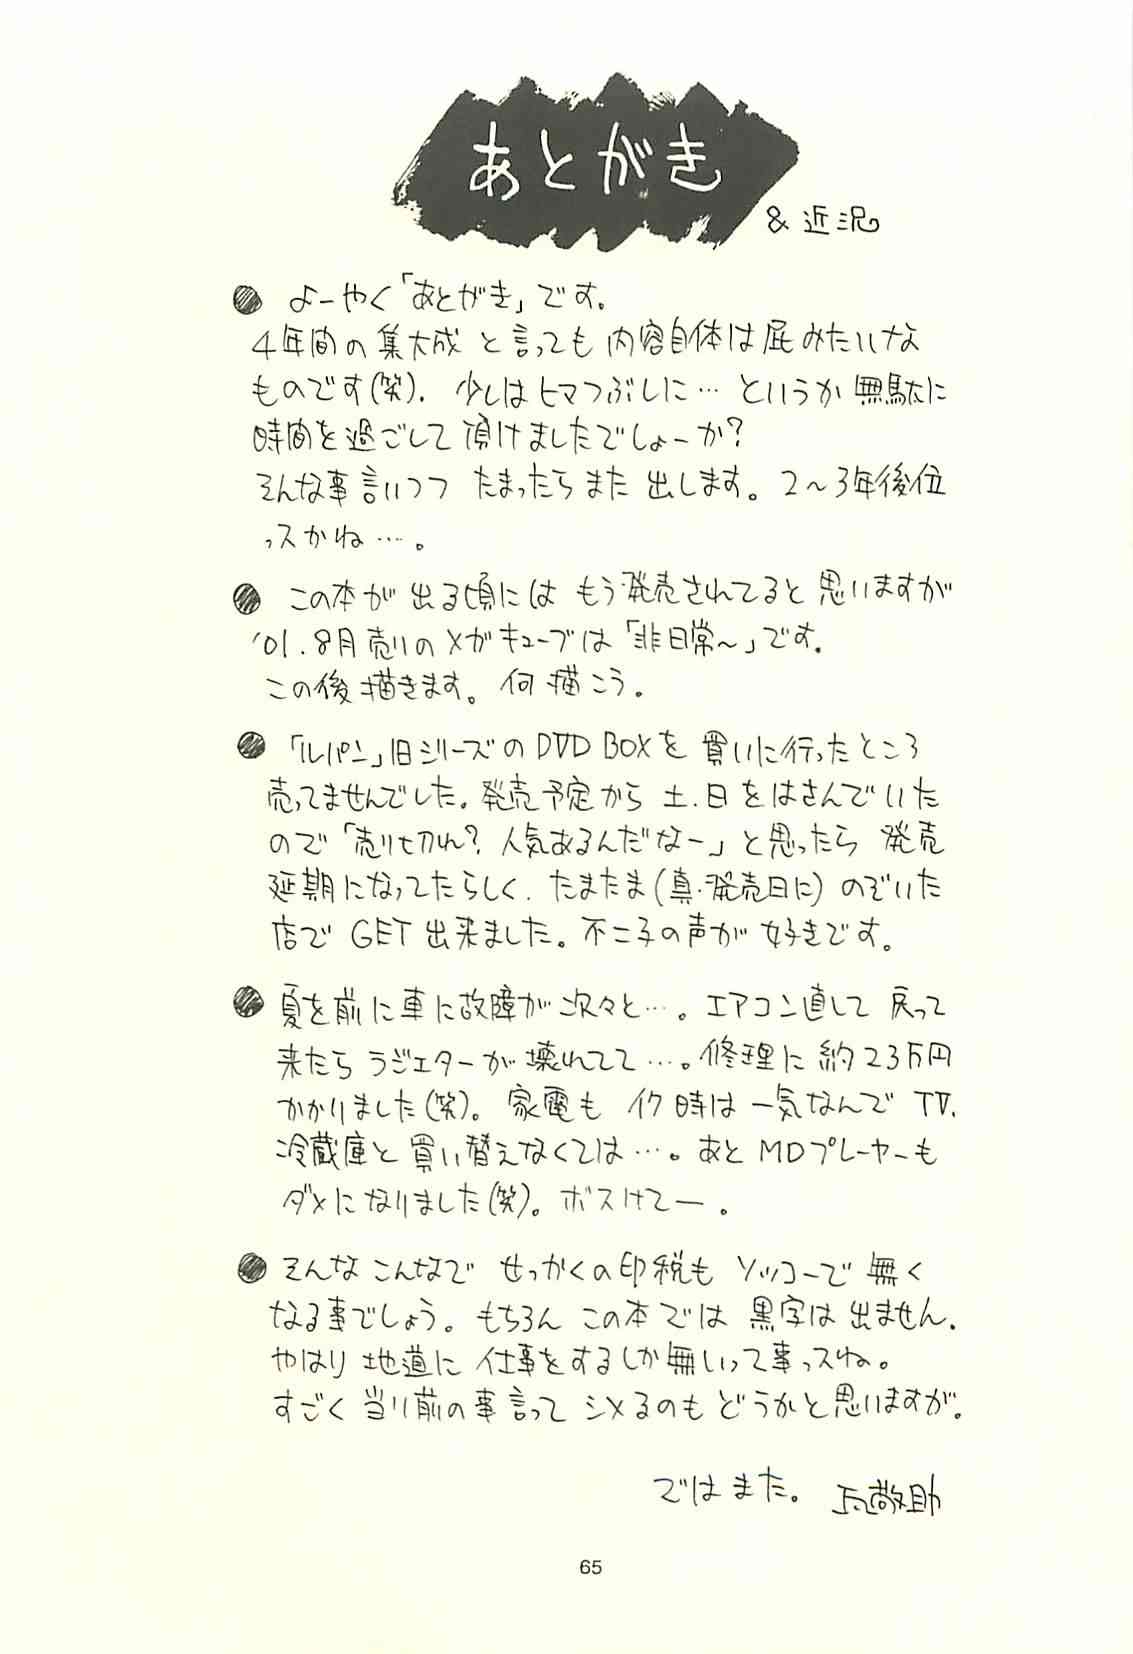 あとがき
& 近況
● よーやく「あとがき」です。
4年間の集大成と言っても内容自体は屁みたいな
ものです(笑). 少しはヒマつぶしに… というか無駄に
時間を過ごして頂けましたでしょーか?
そんな事言いつつ たまったらまた出します。2〜3年後位
っスかね…。
● この本が出る頃には もう発売されてると思いますが
'01.8月売りのメガキューブは「非日常〜」です.
この後描きます。何描こう.
● 「ルパン」旧シリーズのDVD BOXを買いに行ったところ
売ってませんでした。発売予定から土.日をはさんでいた
ので「売り切れ?人気あるんだなー」と思ったら 発売
延期になってたらしく. たまたま(真・発売日に) のぞいた
店でGET出来ました。不二子の声が好きです。
● 夏を前に車に故障が次々と…。エアコン直して戻って
来たらラジエターが壊れてて…。修理に約23万円
かかりました(笑)。家電もイク時は一気なんでTV.
冷蔵庫と買い替えなくては…。あとMDプレーヤーも
ダメになりました(笑)。ボスけてー.
● そんなこんなで せっかくの印税もソッコーで無く
なる事でしょう。もちろんこの本では黒字は出ません.
やはり地道に仕事をするしか無いって事っスね。
すごく当り前の事言ってシメるのもどうかと思いますが。
ではまた。 敬助
65